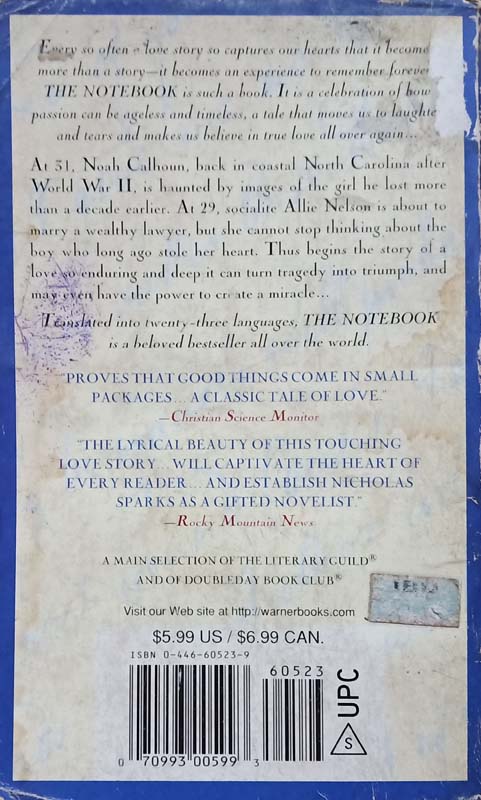 Every so often a love story so captures our hearts that it become
more than a story—it becomes an experience to remember forever
THE NOTEBOOK is such a book. It is a celebration of how
passion can be ageless and timeless, a tale that moves us to laughte
and tears and makes us believe in true love all over again...
At 31, Noah Calhoun, back in coastal North Carolina after
World War II, is haunted by images of the girl he lost more
than a decade earlier. At 29, socialite Allie Nelson is about to
marry a wealthy lawyer, but she cannot stop thinking about the
boy who long ago stole her heart. Thus begins the story of a
love so enduring and deep it can turn tragedy into triumph, and
may even have the power to create a miracle...
Translated into twenty-three languages, THE NOTEBOOK
is a beloved bestseller all over the world.
"PROVES THAT GOOD THINGS COME IN SMALL
PACKAGES...A CLASSIC TALE OF LOVE."
—Christian Science Monitor
"THE LYRICAL BEAUTY OF THIS TOUCHING
LOVE STORY...WILL CAPTIVATE THE HEART OF
EVERY READER...AND ESTABLISH NICHOLAS
SPARKS AS A GIFTED NOVELIST."
—Rocky Mountain News
A MAIN SELECTION OF THE LITERARY GUILD®
AND OF DOUBLEDAY BOOK CLUB®
Visit our Web site at http://warnerbooks.com
$5.99 US / $6.99 CAN.
ISBN 0-446-60523-9
60523
0 70993 00599 3
UPC
S